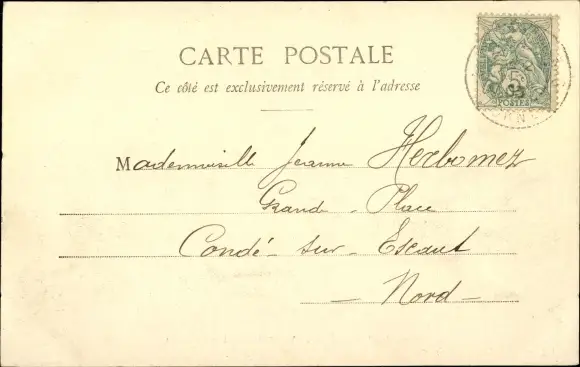 CARTE POSTALE
Ce côté est exclusivement réservé à l'adresse
Mademoiselle Jeanne Herbomez
Grande - Place
Condé - sur - Escaut
- Nord -
5
POSTES